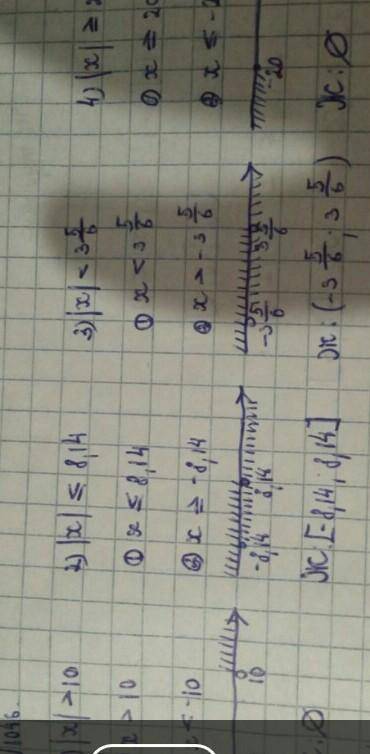 1046.
|x| > 10
x > 10
x < -10
10
∅
2) |x| ≤ 8,14
① x ≤ 8,14
② x ≥ -8,14
-8,14 8,14
Ж: [-8,14; 8,14]
3) |x| < 3 5/6
① x < 3 5/6
② x > -3 5/6
-3 5/6 3 5/6
Ж: (-3 5/6; 3 5/6)
4) |x| ≥ 2
① x ≥ 20
② x ≤ -2
-20
Ж: ∅